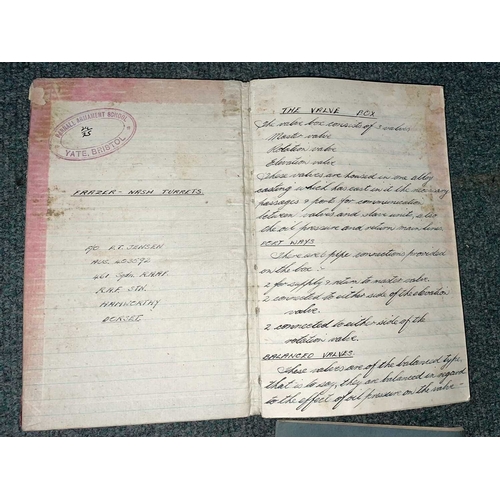 PARNALL ARMAMENT SCHOOL
YATE, BRISTOL
FRAZER-NASH TURRETS.
A/C K.T. JENSEN
AUS.
461 Sqdn. R.A.A.F.
R.A.F. STN.
HAMWORTHY
DORSET
THE VALVE BOX
The valve box consists of 3 valves
Master valve
Rotation valve
Elevation valve
These valves are housed in one alloy
casting which has cast in it the necessary
passages & ports for communication
between valves and slave unit, also
the oil pressure and return main lines
PORT WAYS
There are 6 pipe connections provided
on the box:-
2 for supply & return to master valve
2 connected to either side of the elevation
valve.
2 connected to either side of the
rotation valve.
BALANCED VALVES
These valves are of the balanced type
that is to say, they are balanced in regard
to the effect of oil pressure on the valve-